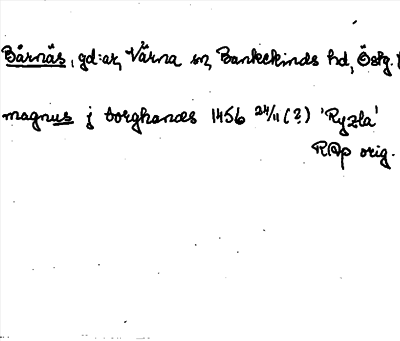 Bårnäs, gd:ar, Värna sn, Bankekinds hd, Östg. l
magnus j borghanæs 1456 24/11 (?) 'Ryzla'
RAp orig.